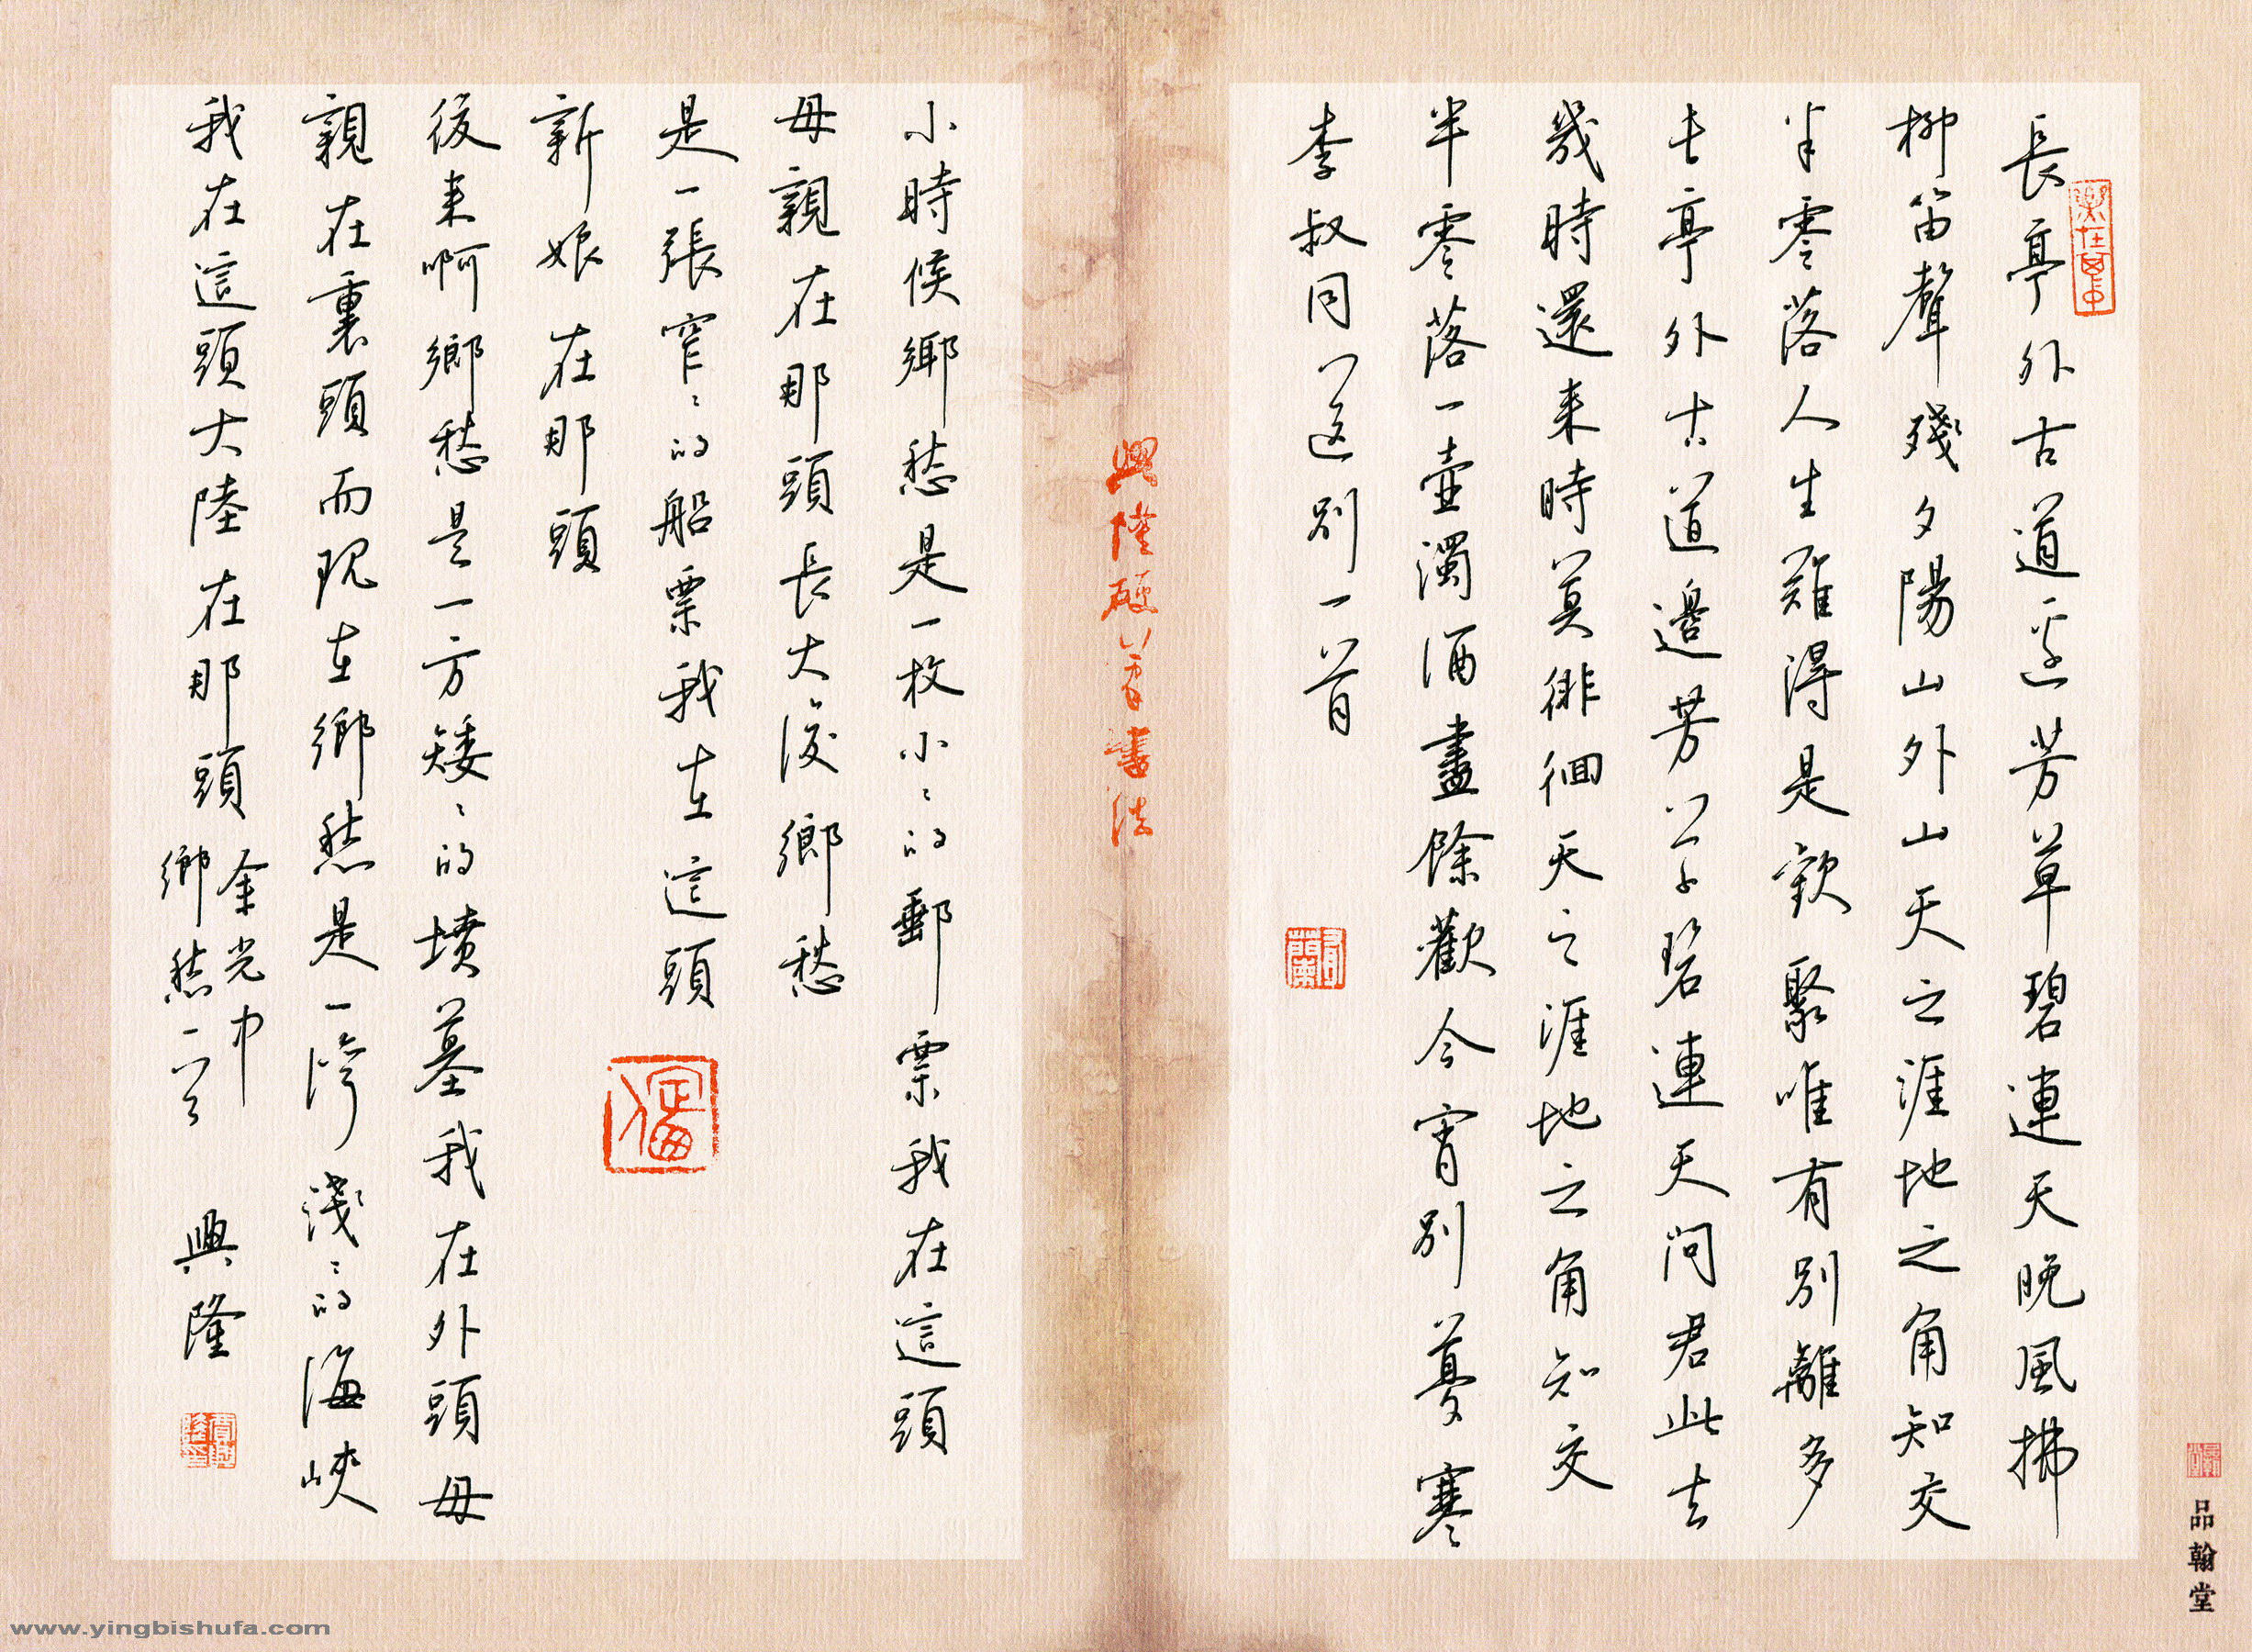 長亭外古道邊芳草碧連天晚風拂
柳笛聲殘夕陽山外山天之涯地之角知交
半零落人生難得是歡聚唯有別離多
長亭外古道邊芳草碧連天問君此去
幾時還來時莫徘徊天之涯地之角知交
半零落一壺濁酒盡餘歡今宵別夢寒
李叔同送別一首
興隆硬筆書法
小時候鄉愁是一枚小小的郵票我在這頭
母親在那頭長大後鄉愁
是一張窄窄的船票我在這頭
新娘在那頭
後來啊鄉愁是一方矮矮的墳墓我在外頭母
親在裏頭而現在鄉愁是一灣淺淺的海峽
我在這頭大陸在那頭
余光中
鄉愁一首
興隆
品翰堂
www.yingbishufa.com